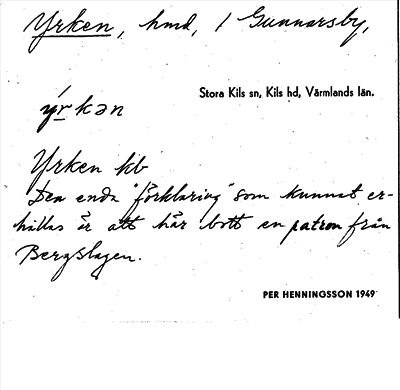 Yrken, hmd, 1 Gunnarsby,
Stora Kils sn, Kils hd, Värmlands län.
ýrkən
Yrken kb
Den enda "förklaring" som kunnat er-
hållas är att här bott en patron från
Bergslagen.
PER HENNINGSSON 1949